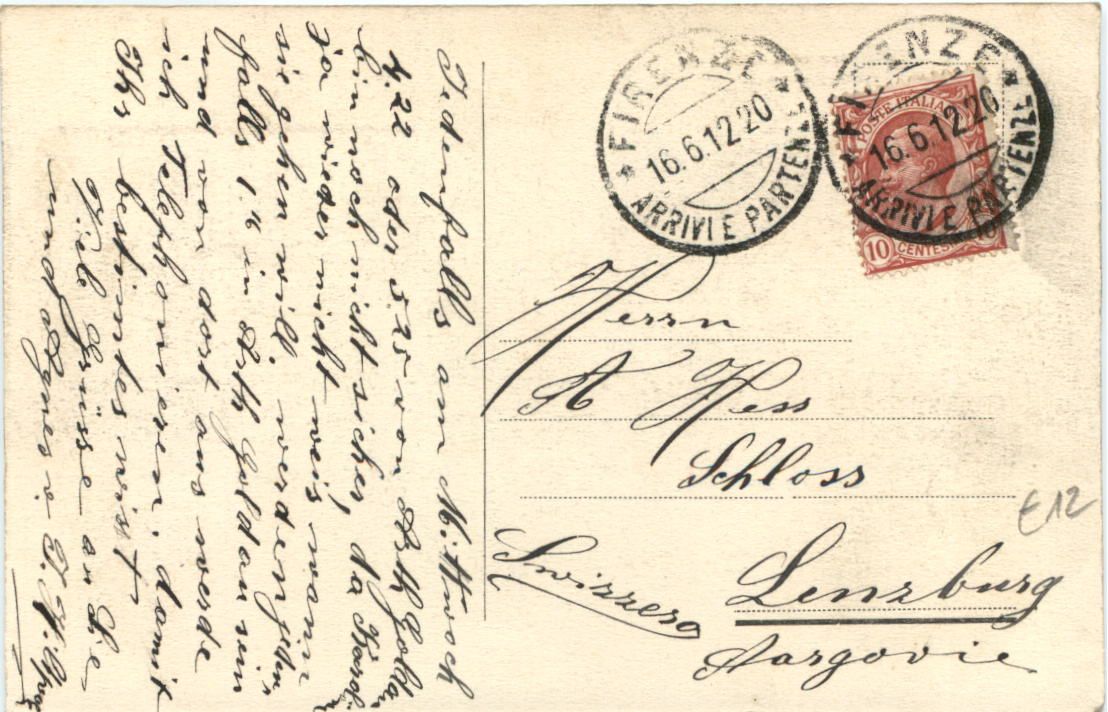 FIRENZE
16.6.12.20
ARRIVI E PARTENZE
FIRENZE
16.6.12.20
ARRIVI E PARTENZE
POSTE ITALIANE
10 CENTESIMI 10
Jedenfalls am Mittwoch
4.22 oder 5.25 von Arth Goldau
bin noch nicht sicher, da
ja wieder nicht weis, wann
sie gehen will, werde
falls 1.ᵗ in Arth Goldau sein
und von dort aus werde
ich Telephonieren, damit
Ihr bestimtes wisst
Viele Grüsse an Sie
und Agnes
Herrn
A Hess
Schloss
Lenzburg
Aargovie
Swizzera
€12